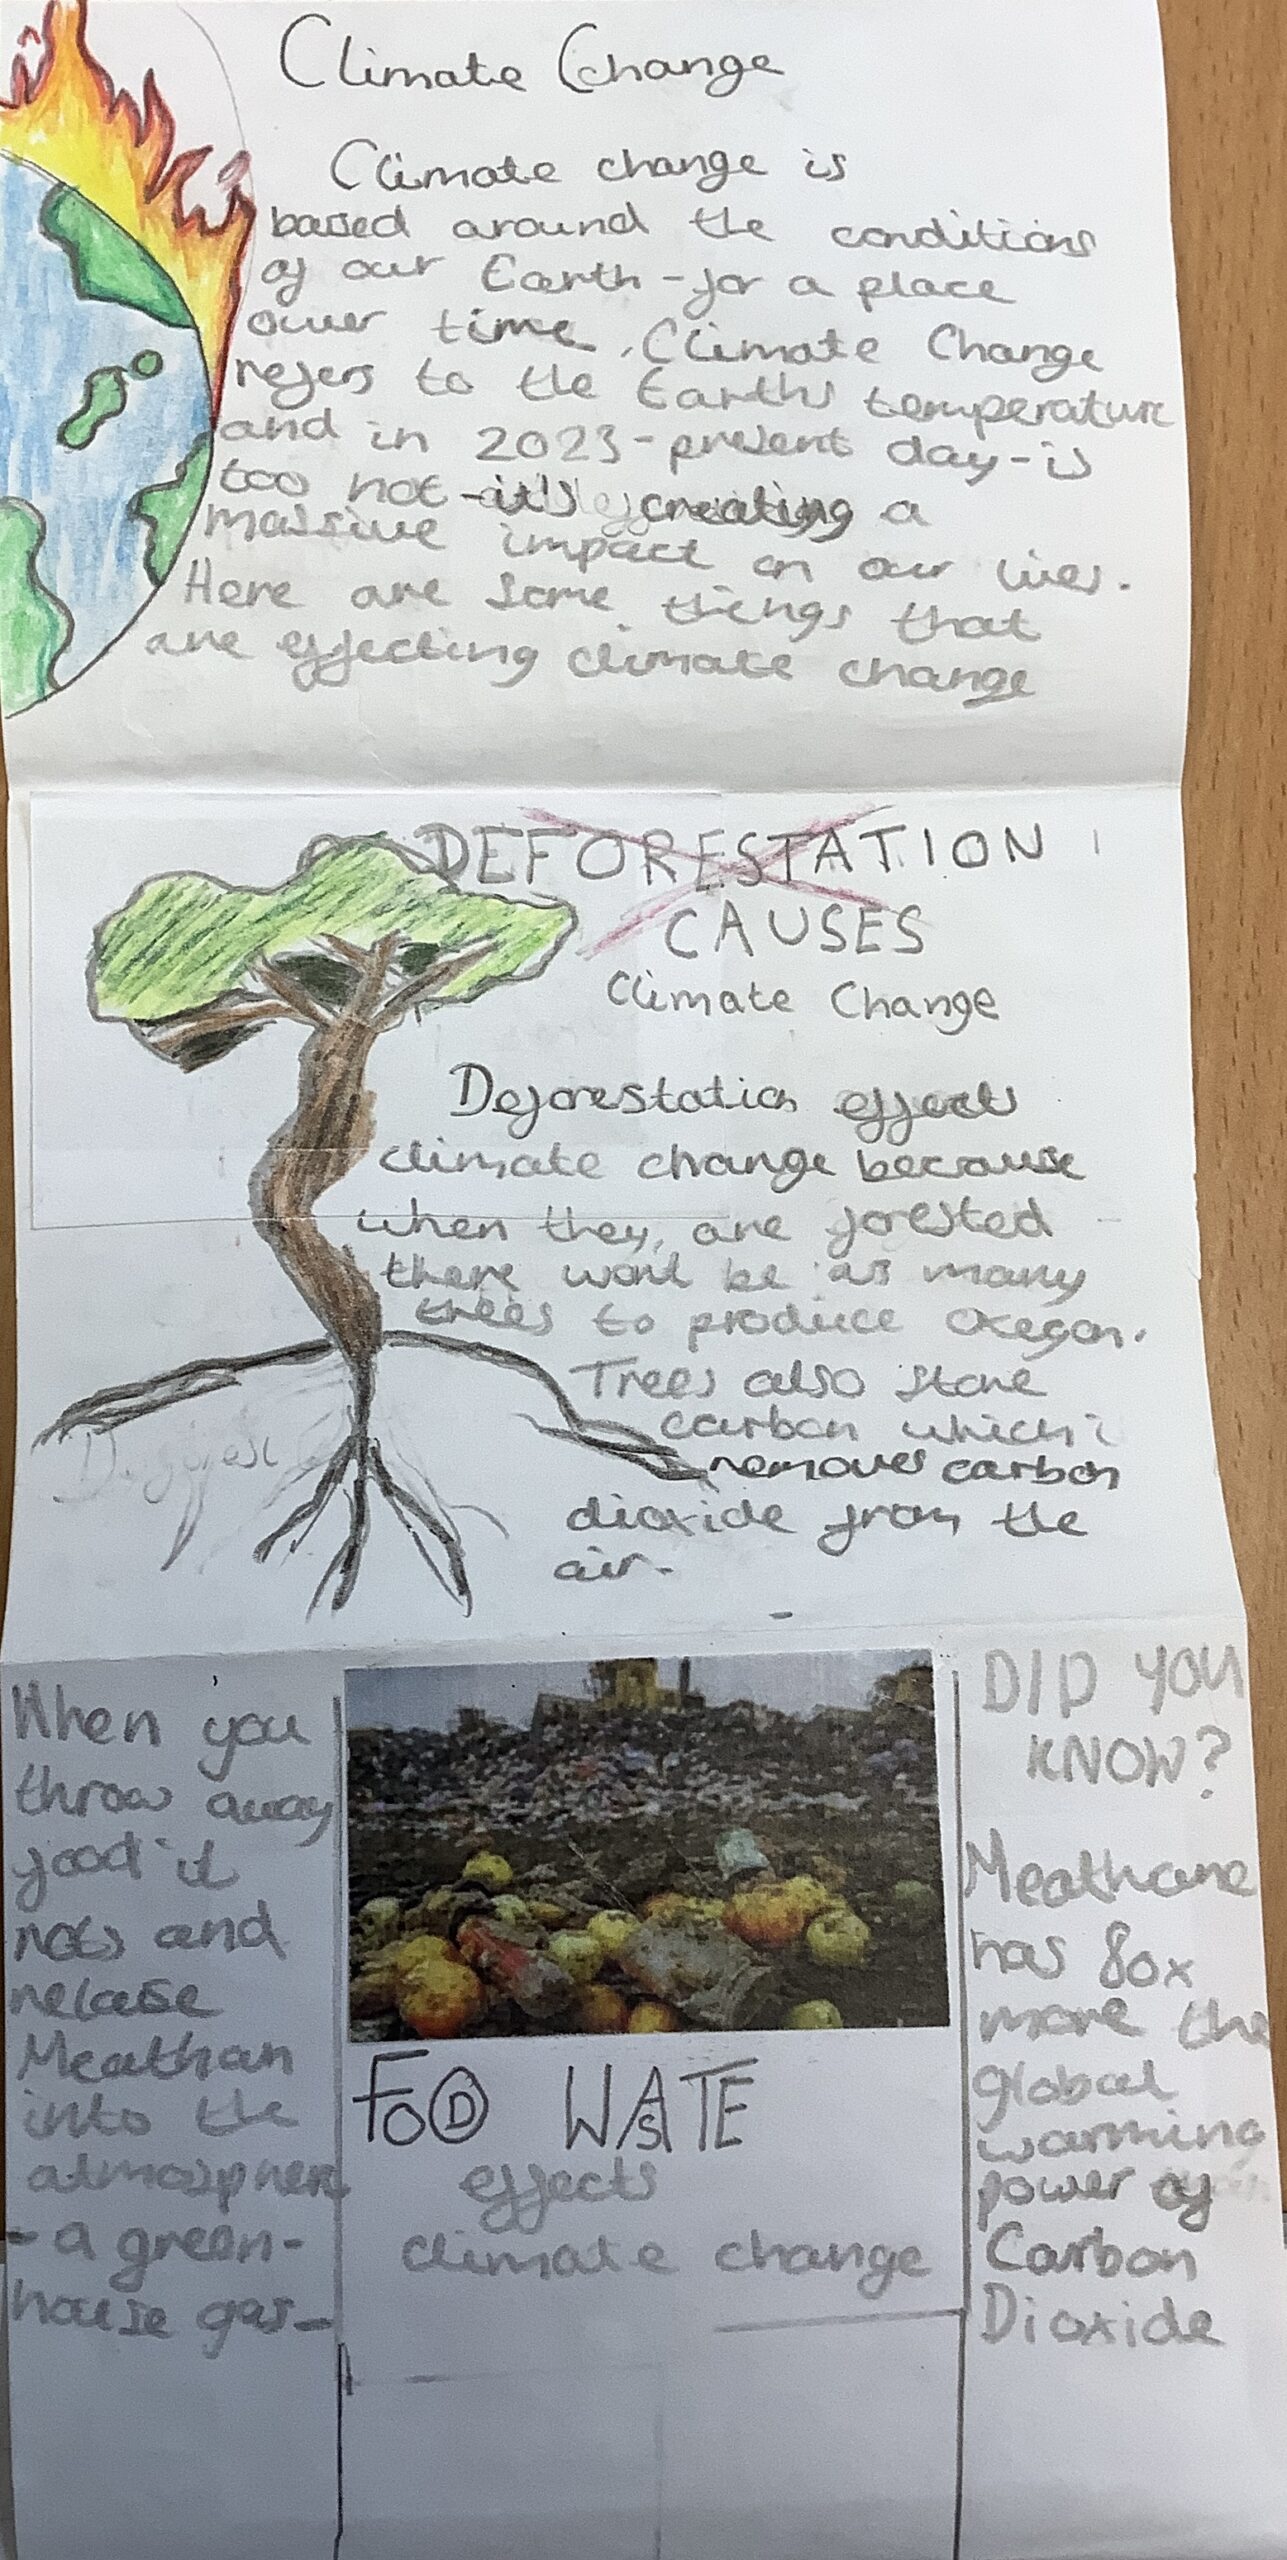 Climate Change
Climate change is
based around the conditions
of our Earth - for a place
over time. Climate Change
refers to the Earths temperature
and in 2023 - present day - is
too hot - it's creating a
massive impact on our lives.
Here are some things that
are effecting climate change
DEFORESTATION
CAUSES
Climate Change
Deforestation effects
climate change because
when they are forested
there wont be as many
trees to produce oxegon.
Trees also store
carbon which
removes carbon
dioxide from the
air.
When you
throw away
food it
rots and
relase
Meathan
into the
atmosphere
- a green-
house gas -
FOOD WASTE
effects
climate change
DID YOU
KNOW?
Meathane
has 80x
more the
global
warming
power of
Carbon
Dioxide